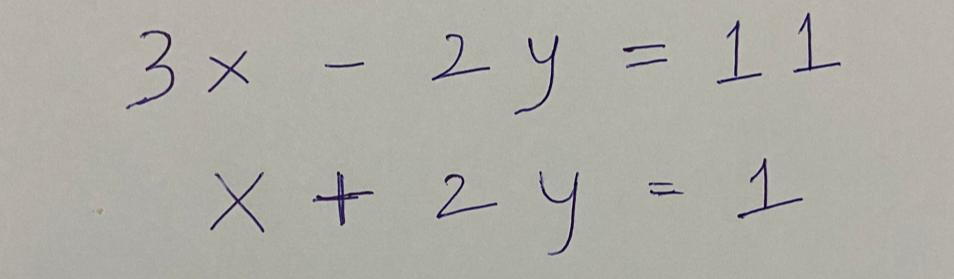 3x - 2y = 11
x + 2y = 1